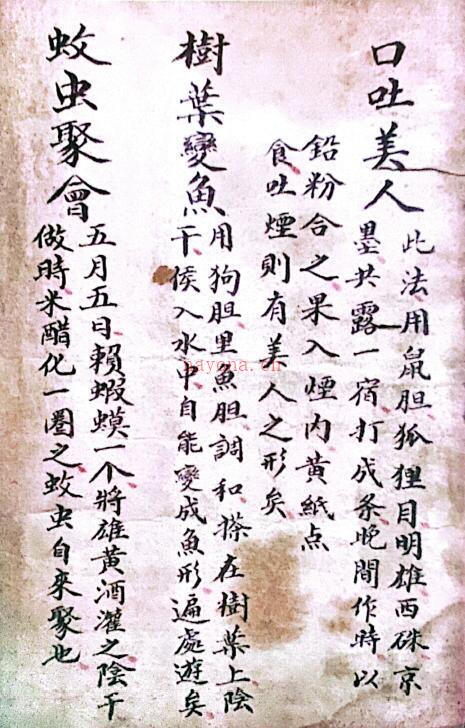 口吐美人
此法用鼠胆狐狸目明雄西硃京
墨共露一宿打成条晚間作時以
鉛粉合之果入煙内黄紙点
食吐煙則有美人之形矣
樹葉變魚
用狗胆里魚胆調和搽在樹葉上陰
干侯入水中自能變成魚形遍處遊矣
蚊虫聚會
五月五日賴蝦蟆一个將雄黄酒灌之陰干
做時米醋化一圈之蚊虫自來聚也
nayona.cn